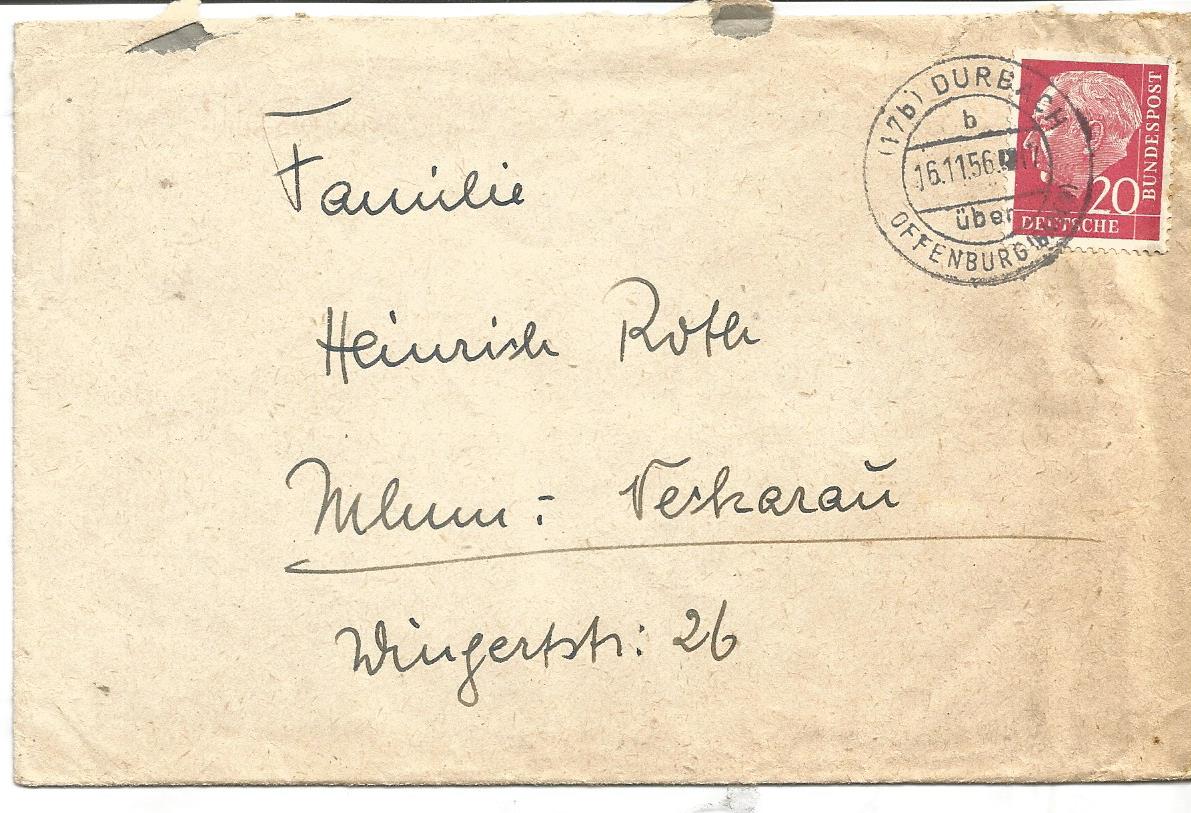 (17b) DURBACH
b
16.11.56
über
OFFENBURG
20
DEUTSCHE
BUNDESPOST
Familie
Heinrich Roth
Mhm:- Neckarau
Wingertstr: 26